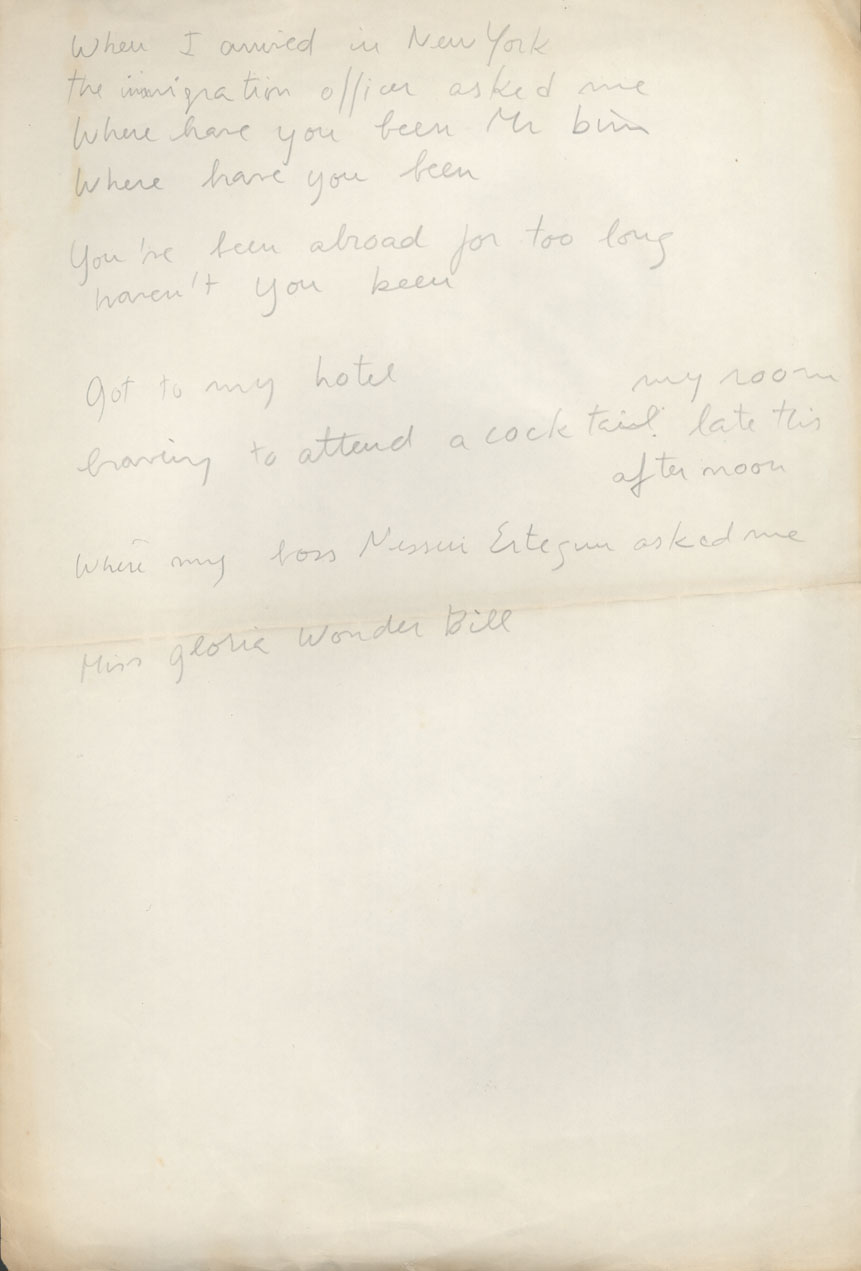 When I arrived in New York
the immigration officer asked me
Where have you been Mr bim
Where have you been
You've been abroad for too long
haven't you been
Got to my hotel my room
having to attend a cocktail late this
afternoon
Where my boss Nessui Ertegun asked me
Miss gloria Wonder Bill